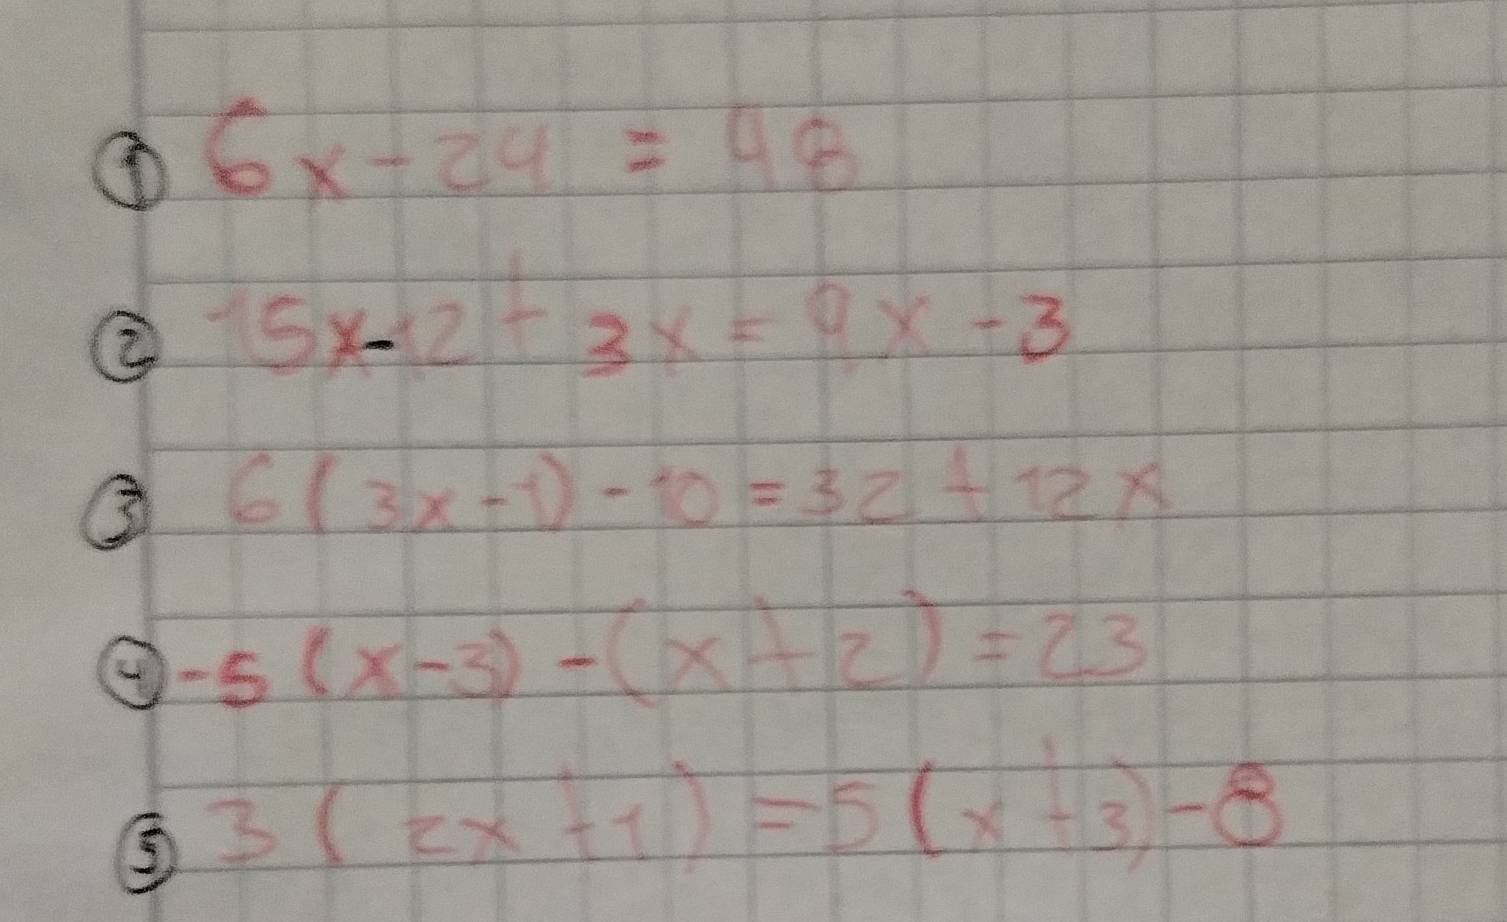 ① 6x-24 = 48
② 15x-12 + 3x = 9x - 3
③ 6(3x-1) - 10 = 32 + 12x
④ -5(x-3) - (x+2) = 23
⑤ 3(2x+1) = 5(x+3) - 8